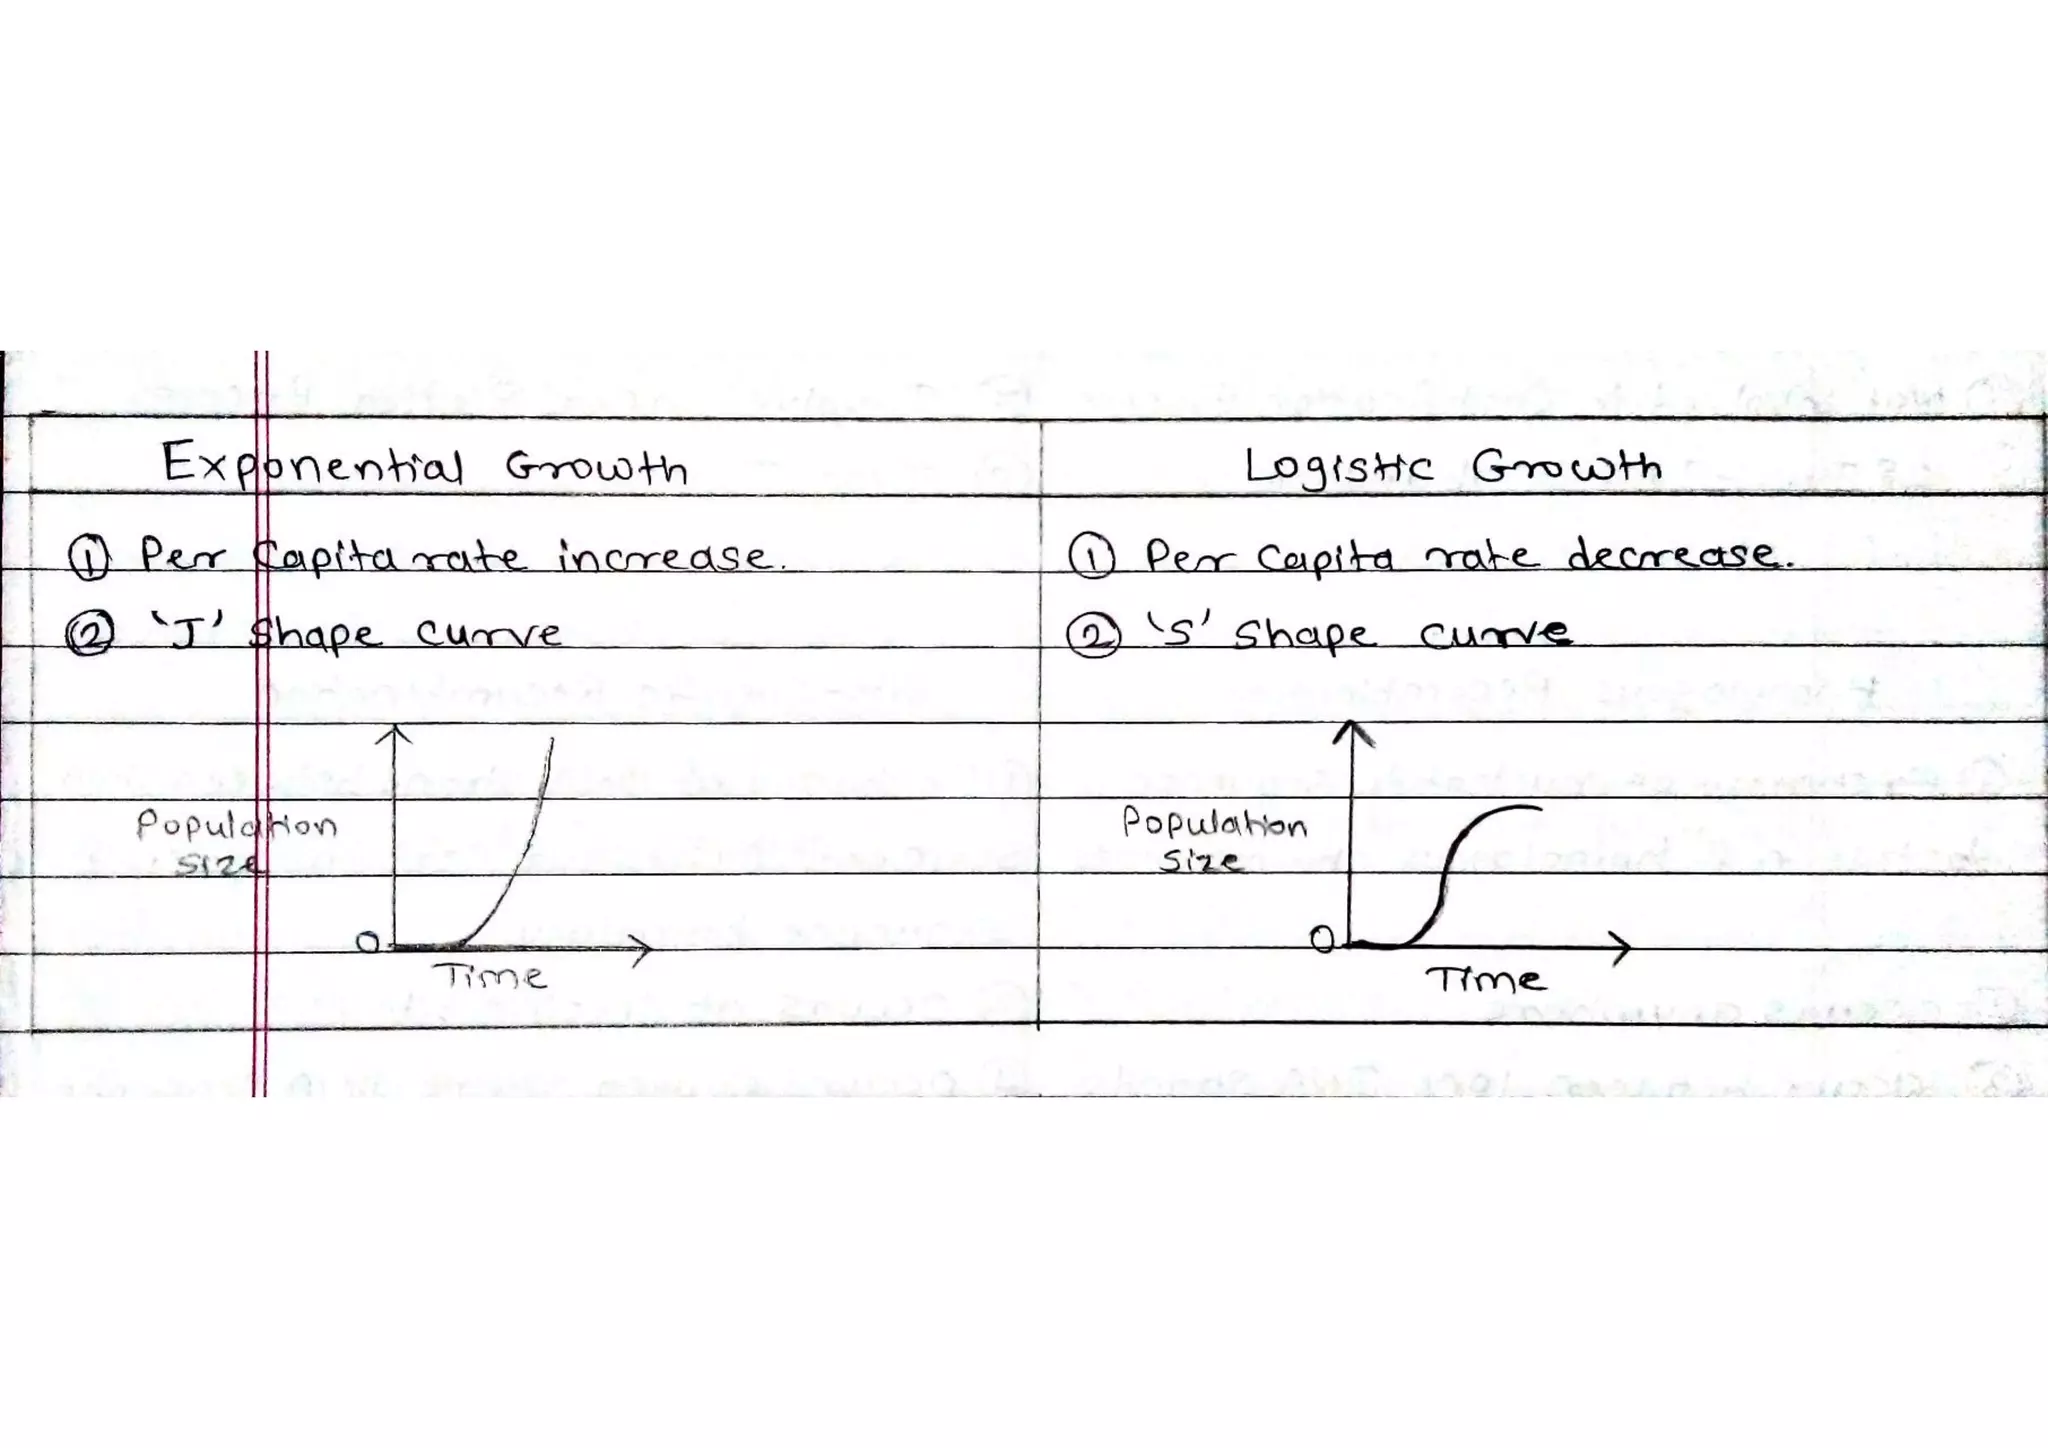 Exponential Growth
① Per Capita rate increase.
② 'J' shape curve
Population
Size
O
Time
Logistic Growth
① Per Capita rate decrease.
② 'S' Shape curve
Population
Size
O
Time